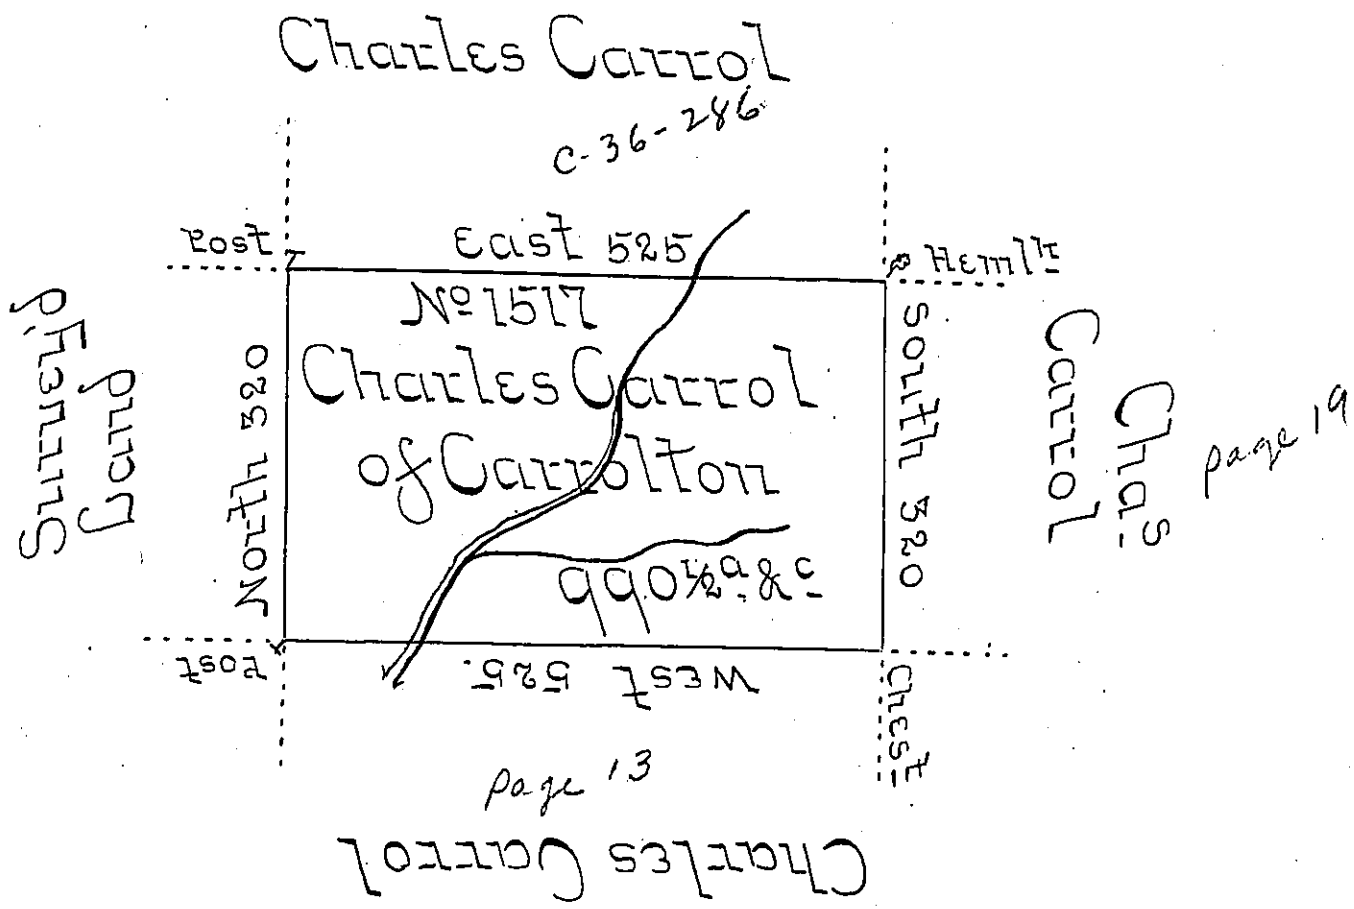 Charles Carrol
C-36-286
Post
East 525
Hemlk
Nº 1517
Charles Carrol
of Carrolton
North 320
South 320
Survey'd
Land
Chas
Carrol
page 19
990 ½ a. & c
West 525.
Post
Chest
page 13
Charles Carrol